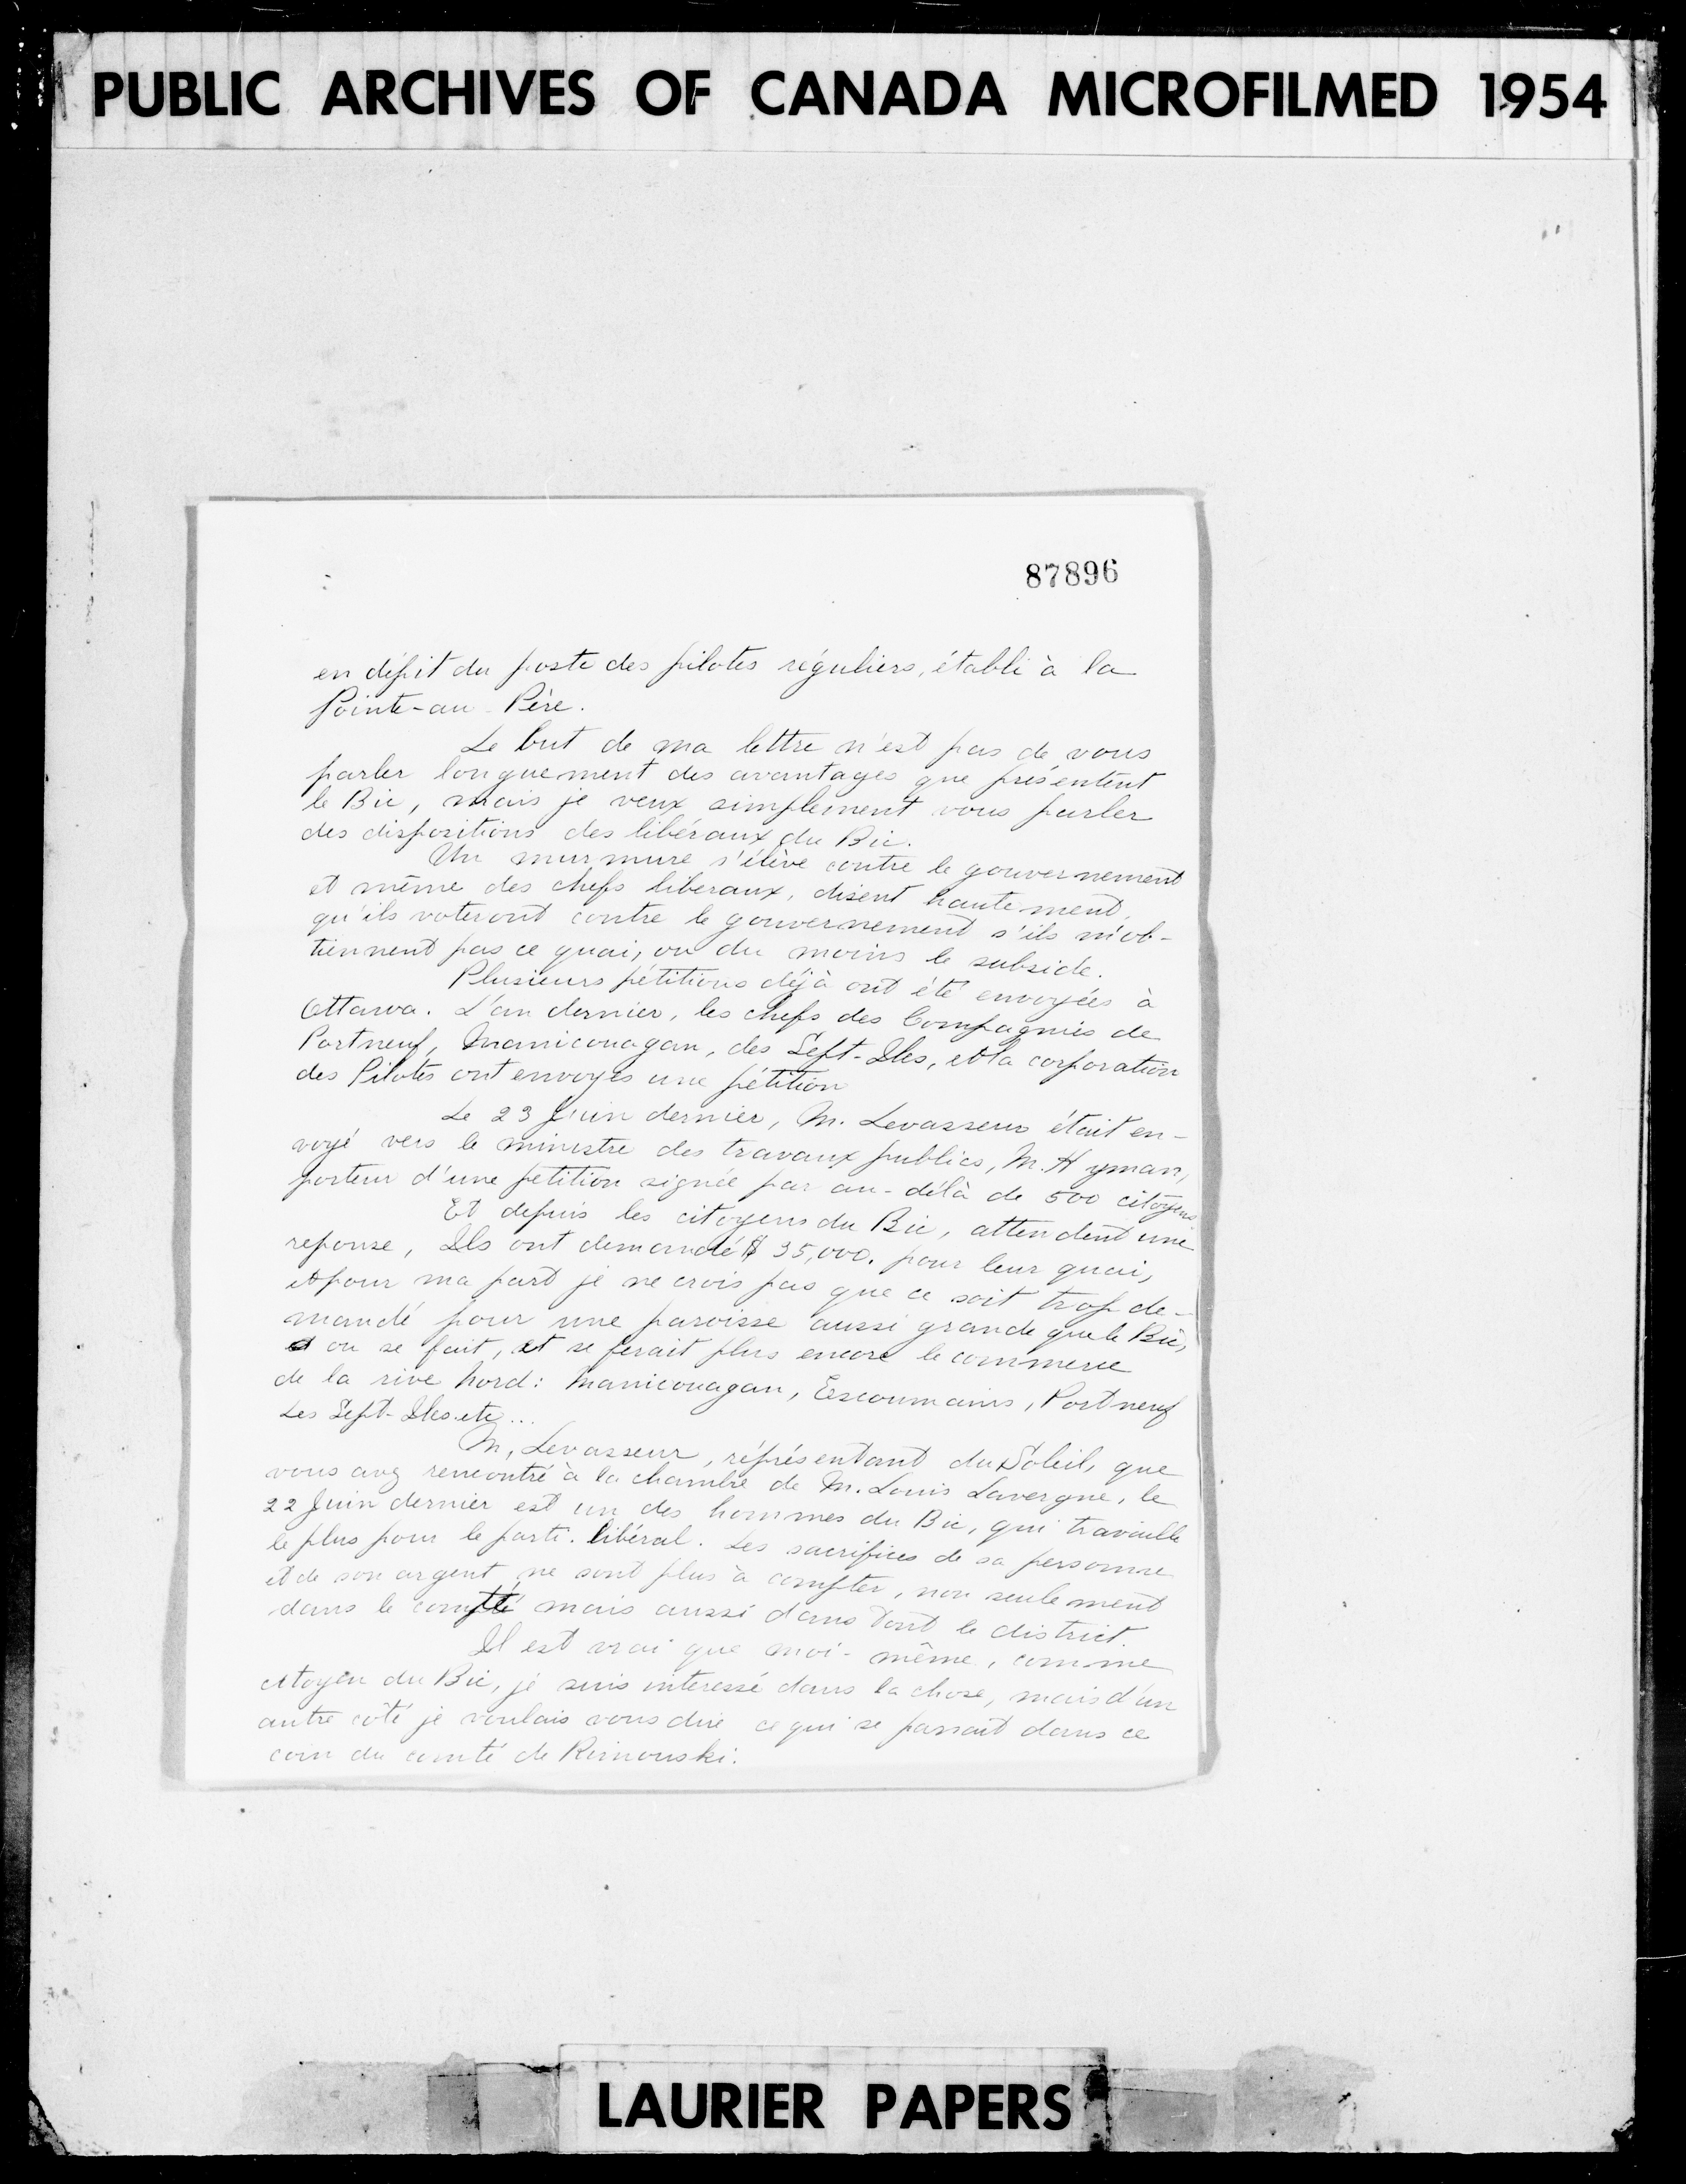 PUBLIC ARCHIVES OF CANADA MICROFILMED 1954
87896
en dépit du poste des pilotes réguliers, établi à la
Pointe-au-Père.
Le but de ma lettre n'est pas de vous
parler longuement des avantages que présentent
le Bic, mais je veux simplement vous parler
des dispositions des libéraux du Bic.
Un murmure s'élève contre le gouvernement
et même des chefs liberaux, disent hautement,
qu'ils voteront contre le gouvernement s'ils n'ob-
tiennent pas ce quai, ou du moins le subside.
Plusieurs pétitions déjà ont été envoyées à
Ottawa. L'an dernier, les chefs des Compagnies de
Portneuf, Manicouagan, des Sept-Iles, et la corporation
des Pilotes ont envoyés une pétition
Le 23 Juin dernier, M. Levasseur était en-
voyé vers le ministre des travaux publics, M. Hyman,
porteur d'une petition signée par au-délà de 500 citoyens.
Et depuis les citoyens du Bic, attendent une
reponse, Ils ont demandé $ 35,000. pour leur quai,
et pour ma part je ne crois pas que ce soit trop de-
mandé pour une paroisse aussi grande que le Bic,
ou se fait, et se ferait plus encore le commerce
de la rive Nord: Manicouagan, Escoumains, Portneuf
Les Sept-Iles etc...
M, Levasseur, réprésentant du Soleil, que
vous avez rencontré à la chambre de M. Louis Lavergne, le
22 Juin dernier est un des hommes du Bic, qui travaille
le plus pour le parti. libéral. Les sacrifices de sa personne
et de son argent ne sont plus à compter, non seulement
dans le compté mais aussi dans tout le district.
Il est vrai que moi-même, comme
citoyen du Bic, je suis interessé dans la chose, mais d'un
autre côté je voulais vous dire ce qui se passait dans ce
coin du comté de Rimouski.
LAURIER PAPERS